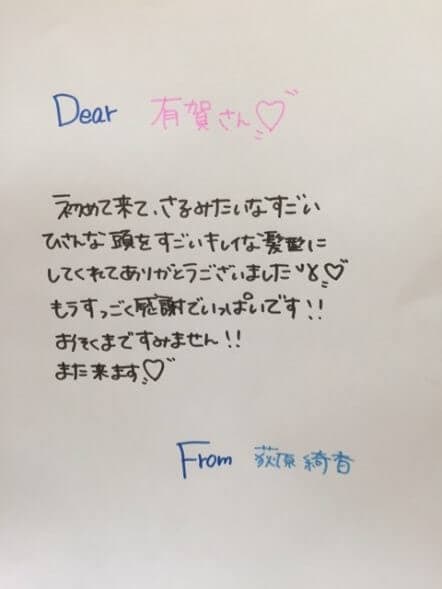 Dear 有賀さん♡
初めて来て、さるみたいなすごい
ひさんな頭をすごいキレイな髪型に
してくれてありがとうございました♡
もうすっごく感謝でいっぱいです!!
おそくまですみません!!
また来ます♡
From 荻原綺香